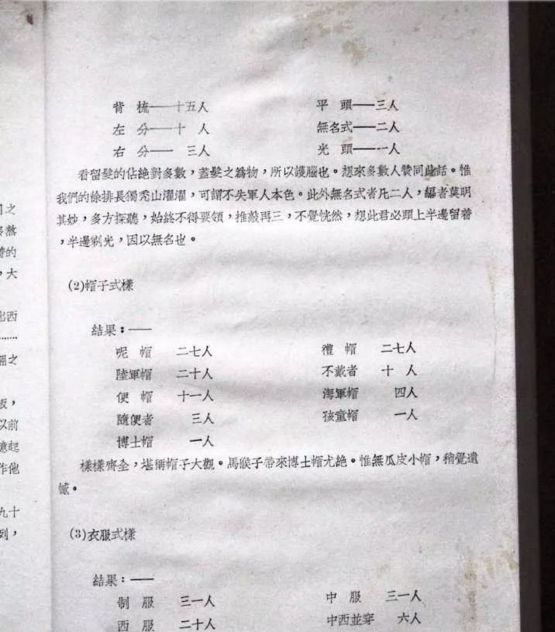 背　梳——十五人　　平　頭——三人
左　分——十　人　　無名式——二人
右　分——　三人　　光　頭——一人
看留髮的佔絕對多數，蓋髮之為物，所以護腦也。想來多數人贊同此話。惟
我們的徐排長獨禿山濯濯，可謂不失軍人本色。此外無名式者凡二人，編者莫明
其妙，多方探聽，始終不得要領，推敲再三，不覺恍然，想此君必頭上半邊留着
，半邊剃光，因以無名也。
(2)帽子式樣
結果：——
呢　帽　二七人　　禮　帽　二七人
陸軍帽　二十人　　不戴者　十　人
便　帽　十一人　　海軍帽　　四人
隨便者　　三人　　孩童帽　　一人
博士帽　　一人
樣樣齊全，堪稱帽子大觀。馬猴子帶來博士帽尤絕。惟無瓜皮小帽，稍覺遺
憾。
(3)衣服式樣
結果：——
制　服　三一人　　中　服　三一人
西　服　二十人　　中西並穿　六人
之
的
，大
出西
之
，
以前
起
作他
九十
到，